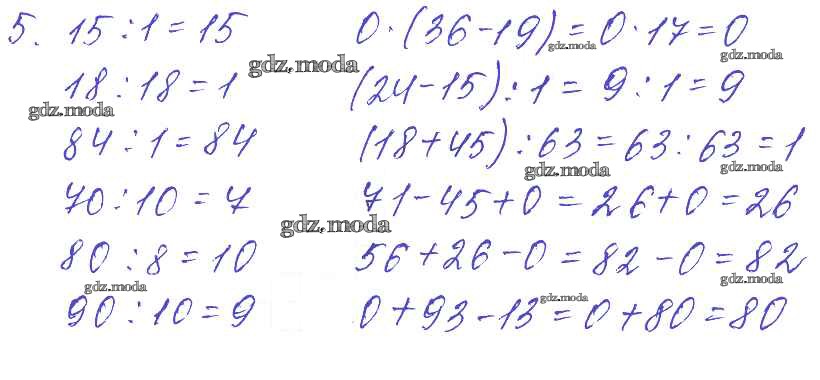 5. 15 : 1 = 15   0 · (36 - 19) = 0 · 17 = 0
18 : 18 = 1   (24 - 15) : 1 = 9 : 1 = 9
84 : 1 = 84   (18 + 45) : 63 = 63 : 63 = 1
70 : 10 = 7   71 - 45 + 0 = 26 + 0 = 26
80 : 8 = 10   56 + 26 - 0 = 82 - 0 = 82
90 : 10 = 9   0 + 93 - 13 = 0 + 80 = 80
gdz.moda
gdz.moda
gdz.moda
gdz.moda
gdz.moda
gdz.moda
gdz.moda
gdz.moda
gdz.moda
gdz.moda